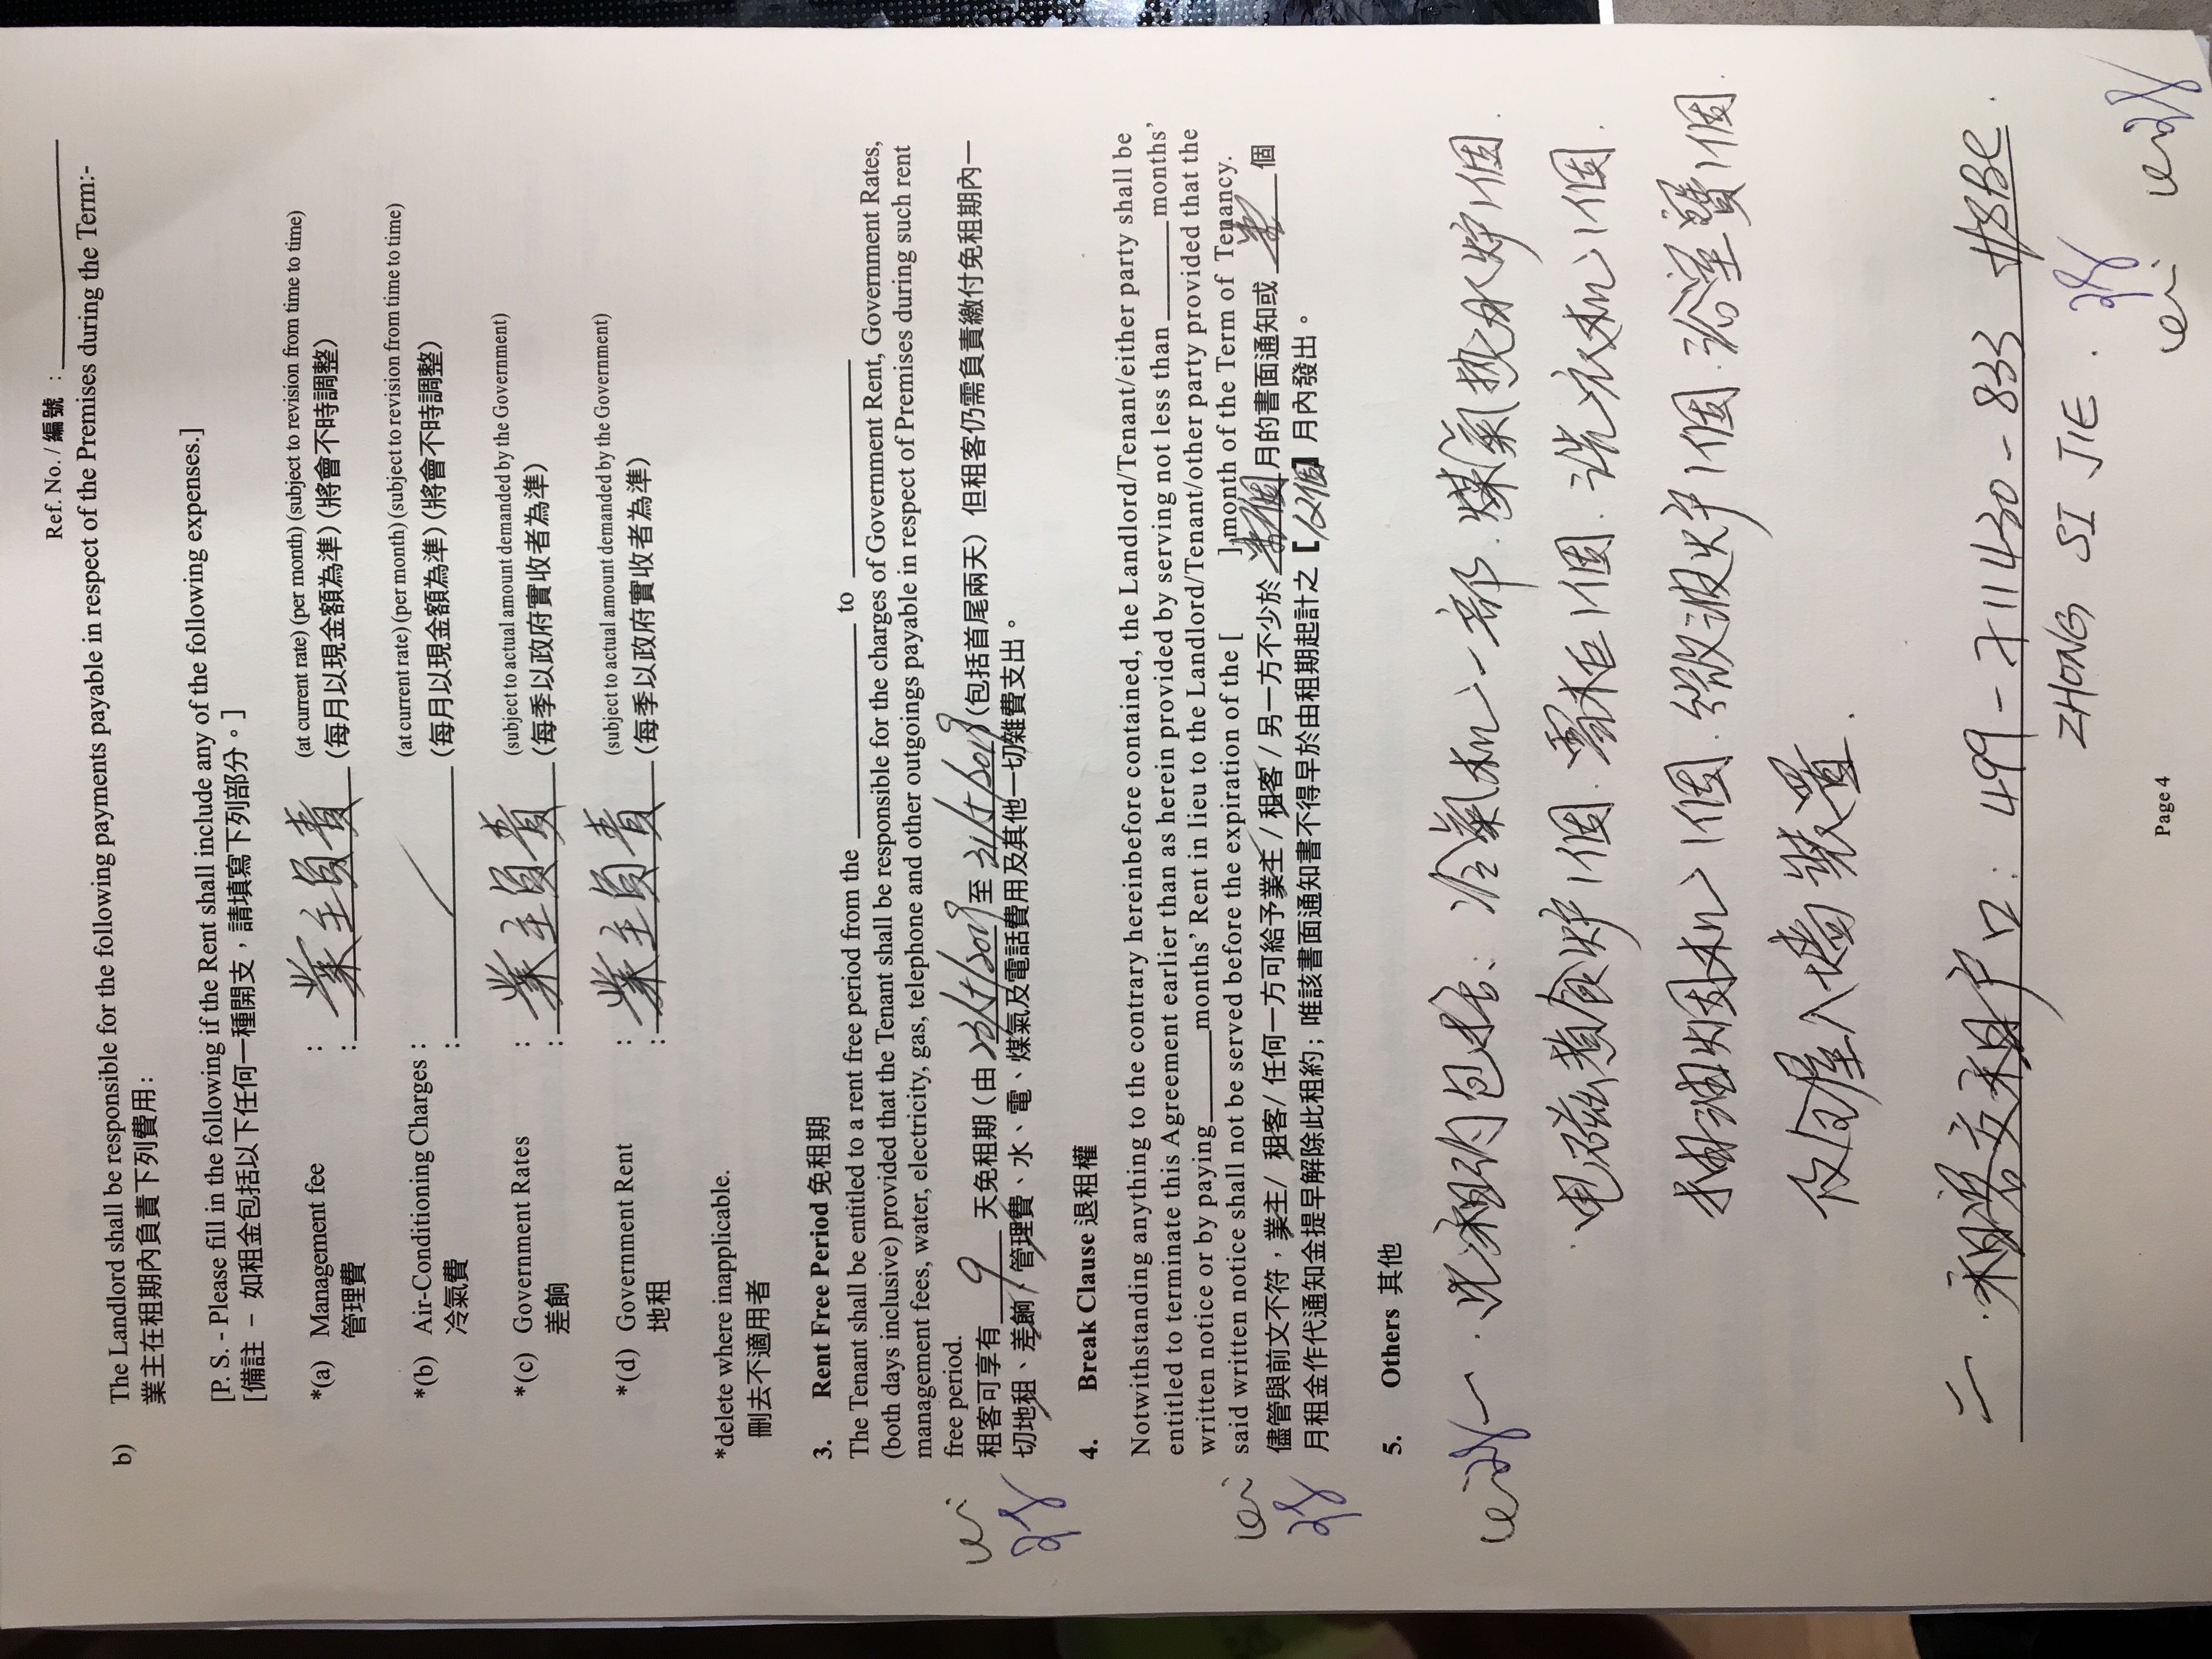 Ref. No. / 編號 :
b) The Landlord shall be responsible for the following payments payable in respect of the Premises during the Term:-
業主在租期內負責下列費用:
[P. S. - Please fill in the following if the Rent shall include any of the following expenses.]
[備註 – 如租金包括以下任何一種開支，請填寫下列部分。]
*(a) Management fee : (at current rate) (per month) (subject to revision from time to time)
管理費 : 業主負責 (每月以現金額為準) (將會不時調整)
*(b) Air-Conditioning Charges : (at current rate) (per month) (subject to revision from time to time)
冷氣費 : (每月以現金額為準) (將會不時調整)
*(c) Government Rates : (subject to actual amount demanded by the Government)
差餉 : 業主負責 (每季以政府實收者為準)
*(d) Government Rent : (subject to actual amount demanded by the Government)
地租 : 業主負責 (每季以政府實收者為準)
*delete where inapplicable.
刪去不適用者
3. Rent Free Period 免租期
The Tenant shall be entitled to a rent free period from the to
(both days inclusive) provided that the Tenant shall be responsible for the charges of Government Rent, Government Rates,
management fees, water, electricity, gas, telephone and other outgoings payable in respect of Premises during such rent
free period.
租客可享有 9 天免租期 (由 至 (包括首尾兩天) 但租客仍需負責繳付免租期內一
切地租、差餉、管理費、水、電、煤氣及電話費用及其他一切雜費支出。
4. Break Clause 退租權
Notwithstanding anything to the contrary hereinbefore contained, the Landlord/Tenant/either party shall be
entitled to terminate this Agreement earlier than as herein provided by serving not less than months'
written notice or by paying months' Rent in lieu to the Landlord/Tenant/other party provided that the
said written notice shall not be served before the expiration of the [ ] month of the Term of Tenancy.
儘管與前文不符，業主/ 租客/ 任何一方可給予業主 / 租客 / 另一方不少於 月的書面通知或 個
月租金作代通知金提早解除此租約；唯該書面通知書不得早於由租期起計之 [ ] 月內發出。
5. Others 其他
一. 此租約包括: 冷氣机一部. 煤氣热水炉1個.
电磁煮食炉1個. 雪柜1個. 洗衣机1個.
抽油烟机1個. 微波炉1個. 浴室寶1個
及全屋入墻裝置.
二. 租客交租户口: 499-711430-833 HSBC.
ZHONG SI JIE.
Page 4